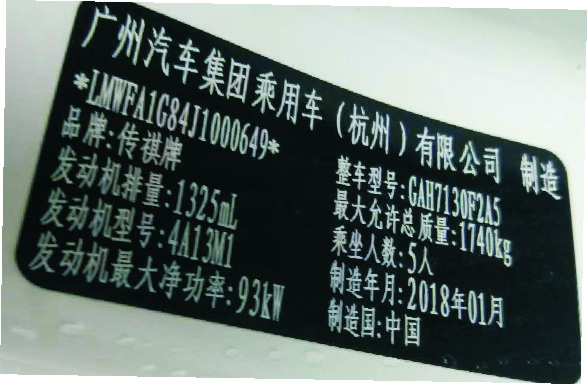 广州汽车集团乘用车（杭州）有限公司 制造
*LMWFA1G84J1000649*
品牌:传祺牌
发动机排量:1325mL
发动机型号:4A13M1
发动机最大净功率:93kW
整车型号:GAH7130F2A5
最大允许总质量:1740kg
乘坐人数:5人
制造年月:2018年01月
制造国:中国